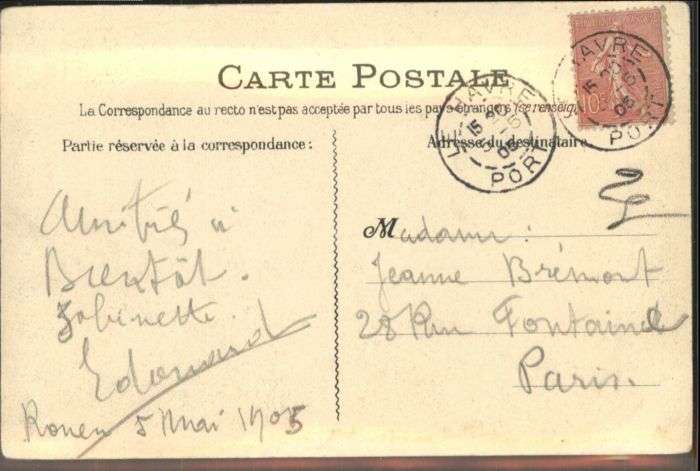 CARTE POSTALE
La Correspondance au recto n'est pas acceptée par tous les pays étrangers (se renseig
Partie réservée à la correspondance :
Adresse du destinataire
LE HAVRE
PORT
05
LE HAVRE
PORT
05
10
Amitiés à
Bientôt.
Gabinette.
Edouard
Rouen 5 Mai 1905
Madame :
Jeanne Brémont
28 Rue Fontaine
Paris.